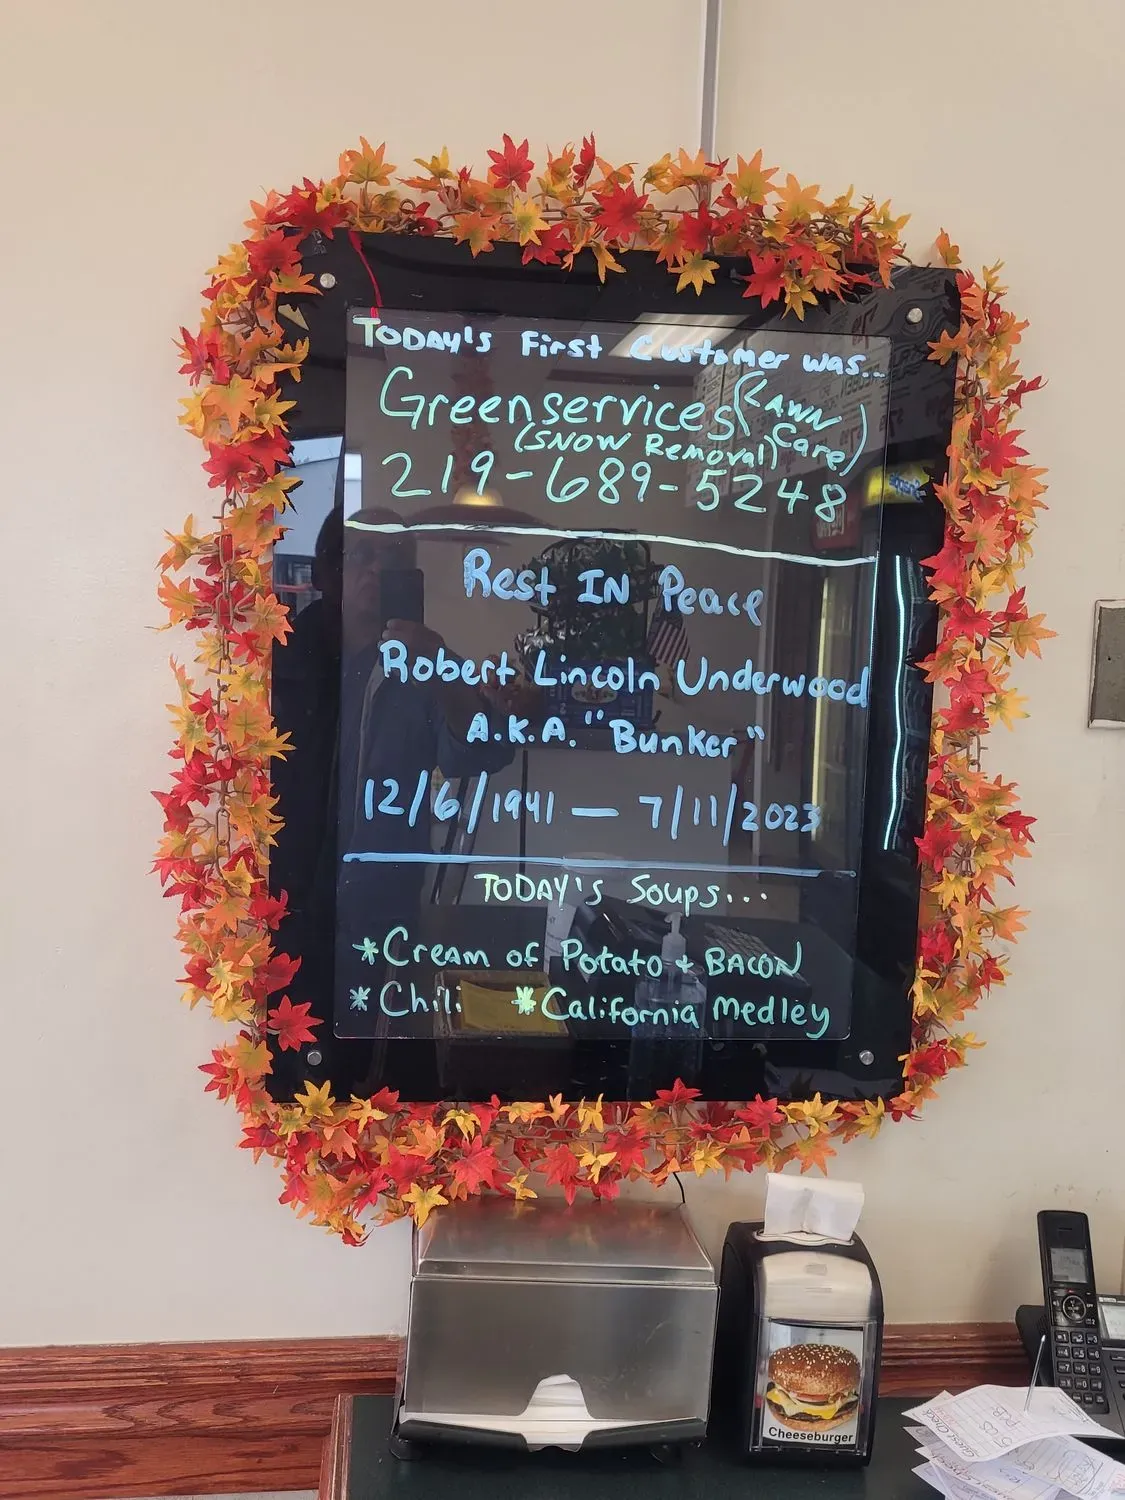 TODAY'S First Customer was...
Greenservices (LAWN Care)
(SNOW Removal)
219-689-5248
Rest IN Peace
Robert Lincoln Underwood
A.K.A. "Bunker"
12/6/1941 — 7/11/2023
TODAY'S Soups...
*Cream of Potato + BACON
*Chili *California Medley
Cheeseburger